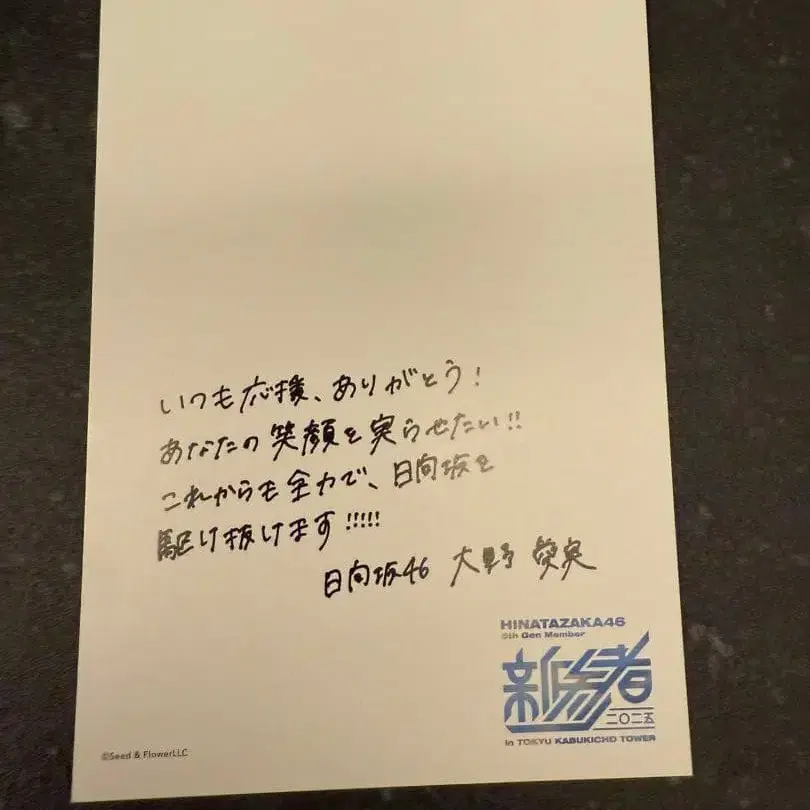 いつも応援、ありがとう!
あなたの笑顔を実らせたい!!
これからも全力で、日向坂を
駆け抜けます!!!!!
日向坂46 大野 愛実
HINATAZAKA46
5th Gen Member
新参者
二〇二五
in TOKYU KABUKICHO TOWER
©Seed & FlowerLLC